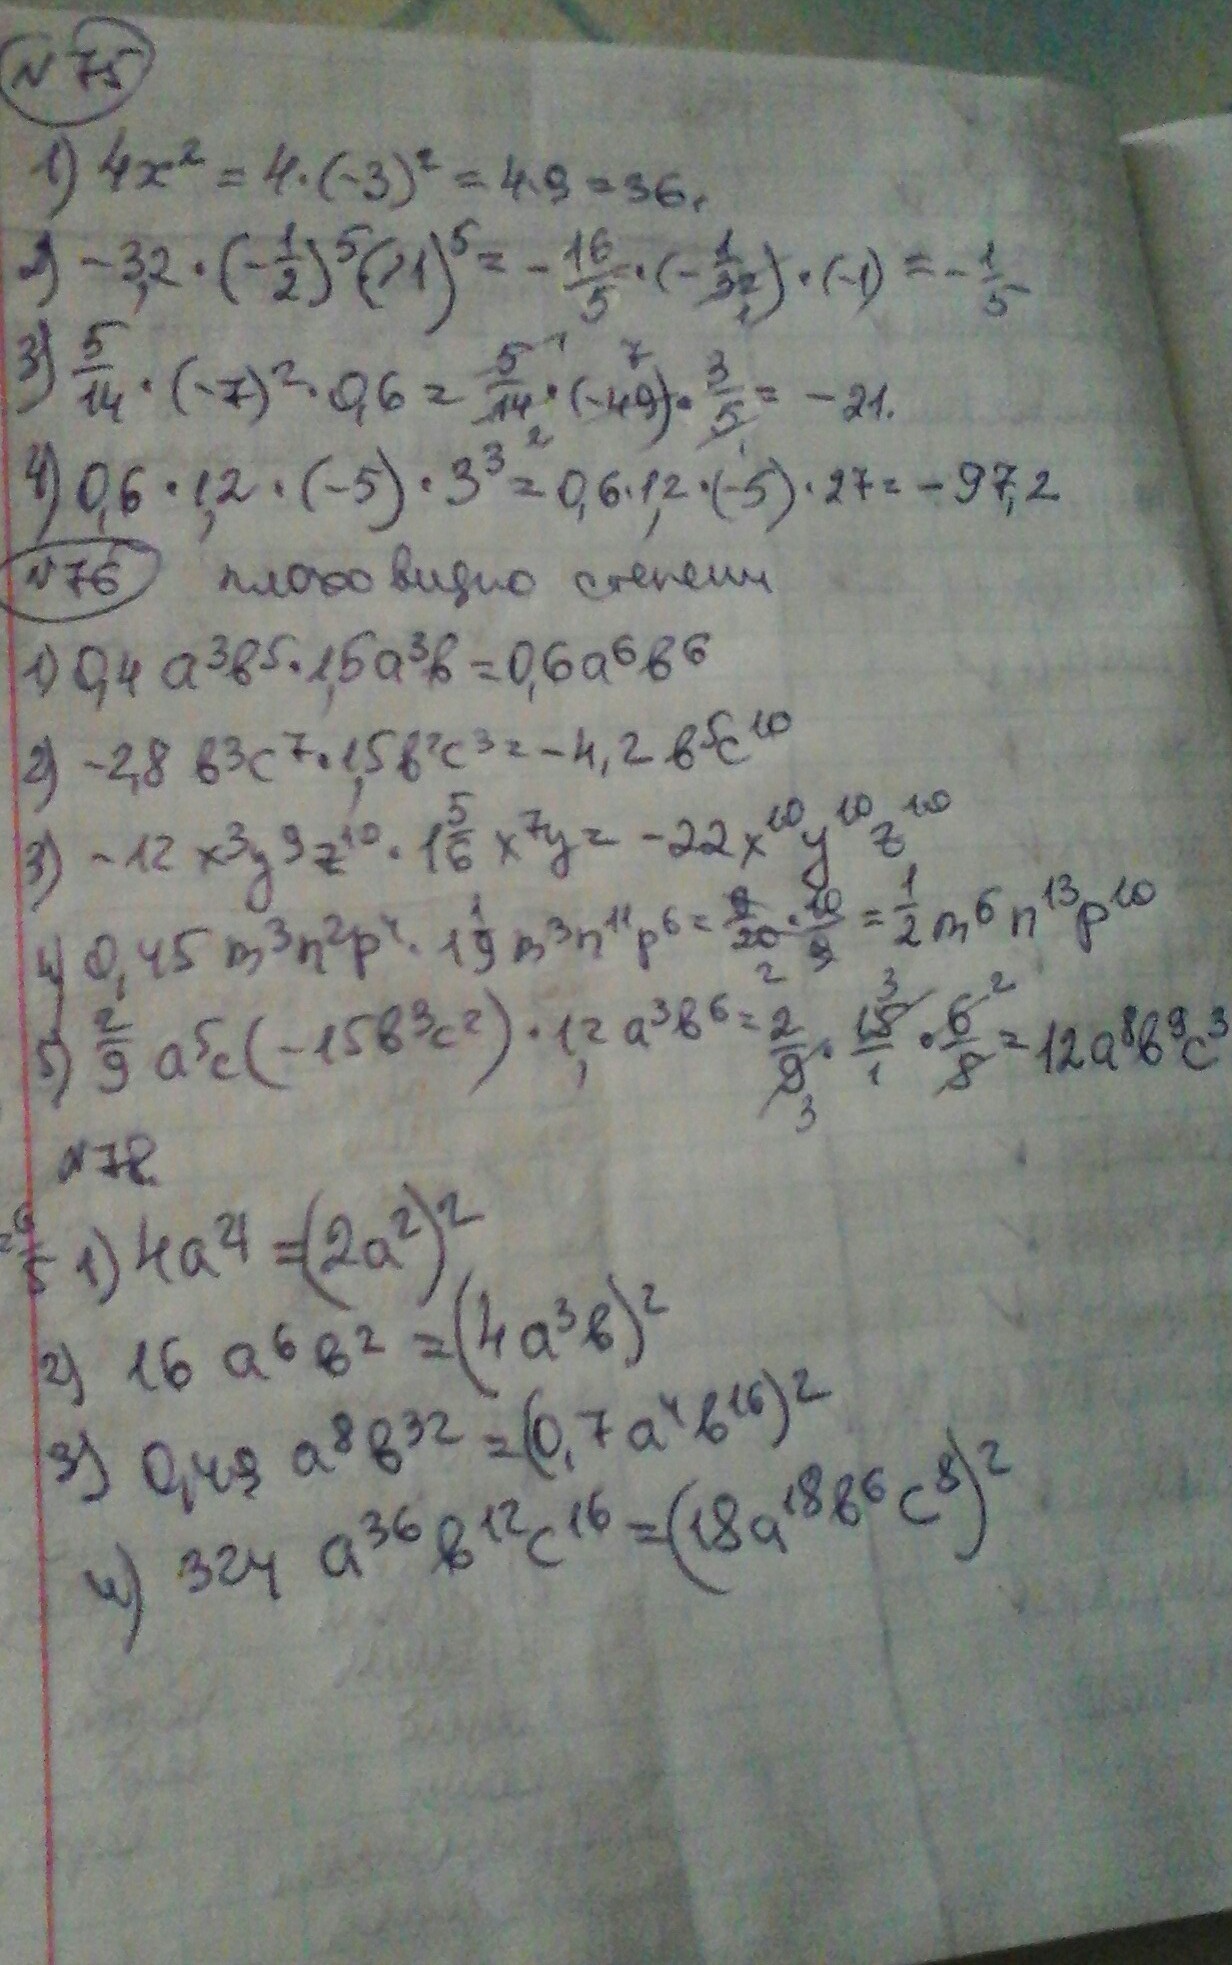 N75
1) 4x² = 4·(-3)² = 4·9 = 36.
2) -3,2·(-1/2)⁵(-1)⁵ = -16/5·(-1/32)·(-1) = -1/5
3) 5/14·(-7)²·0,6 = 5/14·(-49)·3/5 = -21.
4) 0,6·1,2·(-5)·3³ = 0,6·1,2·(-5)·27 = -97,2
N76 плохо видно степени
1) 0,4 a³b⁵·1,5a³b = 0,6a⁶b⁶
2) -2,8 b³c⁷·1,5b²c³ = -4,2 b⁵c¹⁰
3) -12 x³y⁹z¹⁰·1 5/6 x⁷y = -22x¹⁰y¹⁰z¹⁰
4) 0,45 m³n²p⁴·1 1/9 m³n¹¹p⁶ = 9/20·10/9 = 1/2 m⁶n¹³p¹⁰
5) 2/9 a⁵c(-15b³c²)·1,2 a³b⁶ = 2/9·15/1·6/5 = 12a⁸b⁹c³
N78.
1) 4a⁴ = (2a²)²
2) 16 a⁶b² = (4a³b)²
3) 0,49 a⁸b³² = (0,7a⁴b¹⁶)²
4) 324 a³⁶b¹²c¹⁶ = (18a¹⁸b⁶c⁸)²